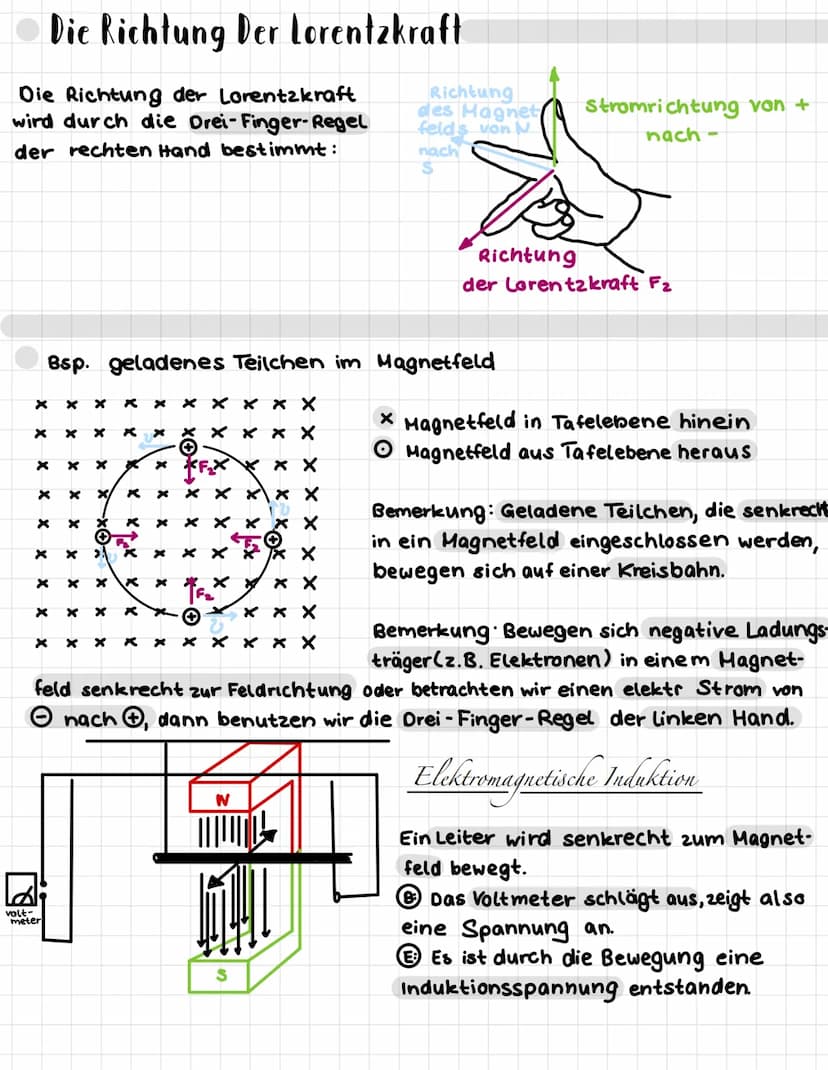 Die Richtung Der Lorentzkraft
Die Richtung der Lorentzkraft
wird durch die Drei-Finger-Regel
der rechten Hand bestimmt:
Richtung
des Magnet
felds von N
nach
S
Stromrichtung von +
nach -
Richtung
der Lorentzkraft F₂
Bsp. geladenes Teilchen im Magnetfeld
x Magnetfeld in Tafelebene hinein
⊙ Magnetfeld aus Tafelebene heraus
v
F₂
v
F₂
F₂
v
F₂
v
Bemerkung: Geladene Teilchen, die senkrecht
in ein Magnetfeld eingeschlossen werden,
bewegen sich auf einer Kreisbahn.
Bemerkung: Bewegen sich negative Ladungs-
träger (z.B. Elektronen) in einem Magnet-
feld senkrecht zur Feldrichtung oder betrachten wir einen elektr Strom von
⊖ nach ⊕, dann benutzen wir die Drei-Finger-Regel der linken Hand.
Elektromagnetische Induktion
N
S
volt-
meter
Ein Leiter wird senkrecht zum Magnet-
feld bewegt.
B: Das Voltmeter schlägt aus, zeigt also
eine Spannung an.
E: Es ist durch die Bewegung eine
Induktionsspannung entstanden